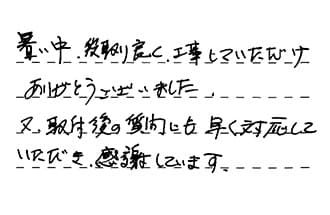 暑い中、段取り良く、工事していただけ
ありがとうございました。
又、取付後の質問にも早く対応して
いただき、感謝しています。